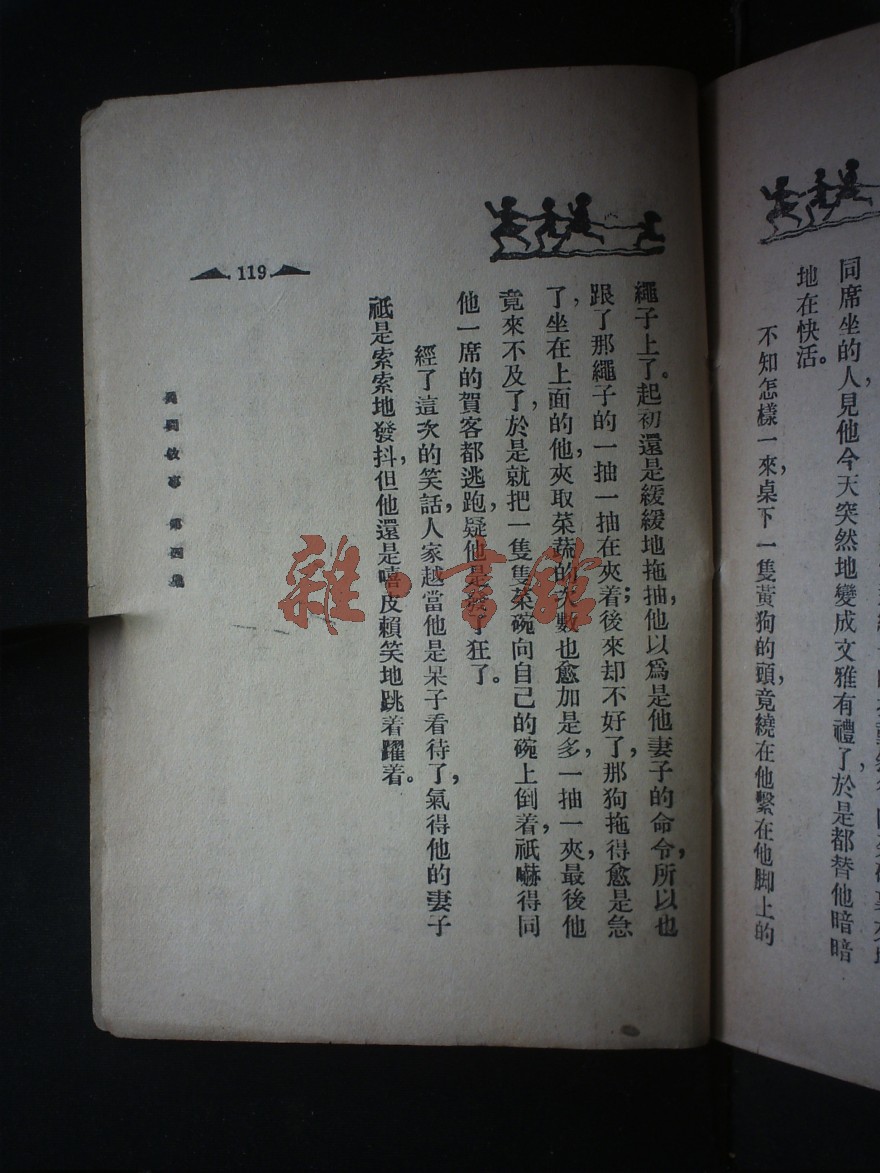 同席坐的人見他今天突然地變成文雅有禮了，於是都替他暗暗
地在快活。
不知怎樣一來，桌下一隻黃狗的頭，竟繞在他繫在他脚上的
繩子上了。起初還是緩緩地拖抽，他以爲是他妻子的命令，所以也
跟了那繩子的一抽一抽在夾着；後來却不好了，那狗拖得愈是急
了，坐在上面的他，夾取菜蔬的次數也愈加是多，一抽一夾，最後他
竟來不及了，於是就把一隻隻菜碗向自己的碗上倒着，祇嚇得同
他一席的賀客都逃跑，疑他是發了狂了。
經了這次的笑話，人家越當他是呆子看待了，氣得他的妻子
祇是索索地發抖，但他還是嘻皮賴笑地跳着躍着。
119
民間故事 第四集
雜·書館